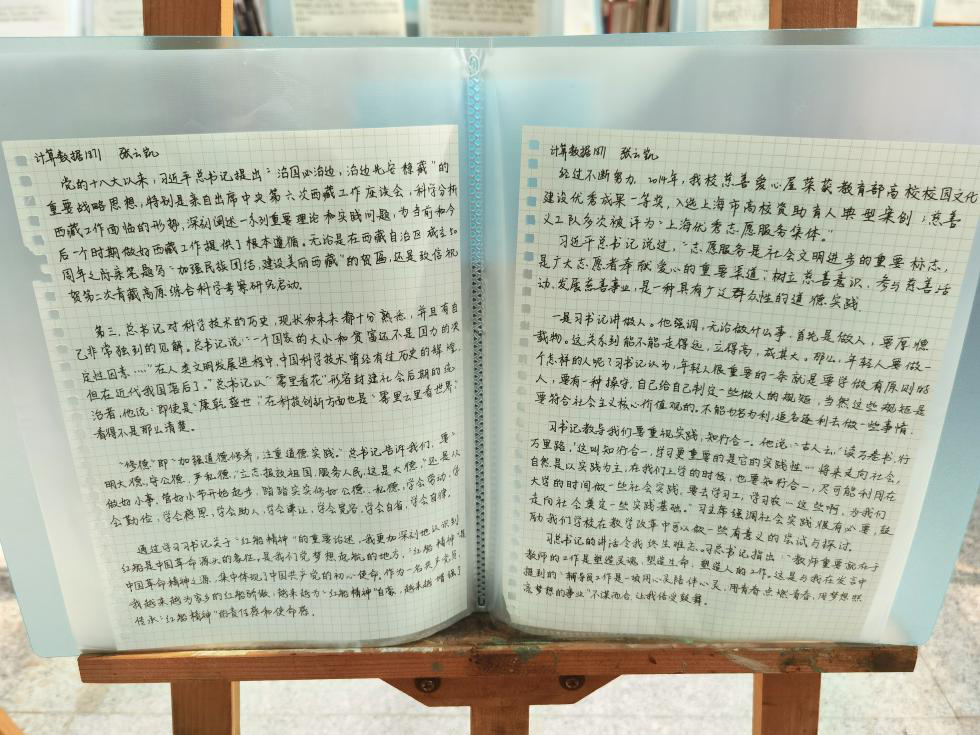 计算数据1871 张云凯
党的十八大以来,习近平总书记提出:"治国必治边,治边先安稳藏"的
重要战略思想,特别是亲自出席中央第六次西藏工作座谈会,科学分析
西藏工作面临的形势,深刻阐述一系列重要理论和实践问题,为当前和今
后一个时期做好西藏工作提供了根本遵循。无论是在西藏自治区成立50
周年之际亲笔题写"加强民族团结,建设美丽西藏"的贺匾,还是致信祝
贺第二次青藏高原综合科学考察研究启动。
第三,总书记对科学技术的历史,现状和未来都十分熟悉,并且有自
己非常独到的见解。总书记说:"一个国家的大小和贫富还不是国力的决
定性因素……"在人类文明发展进程中,中国科学技术曾经有过历史的辉煌,
但在近代我国落后了。"总书记以"雾里看花"形容封建社会后期的统
治者,他说:即使是"康乾盛世",在科技创新方面也是"雾里云里看世界"
看得不是那么清楚。
"修德"即"加强道德修养,注重道德实践。"总书记告诉我们,要"
明大德,守公德,严私德,"立志报效祖国,服务人民,这是大德,"还是从
做好小事,管好小节开始起步,踏踏实实修好公德、私德,学会劳动,学
会勤俭,学会感恩,学会助人,学会谦让,学会宽容,学会自省,学会自律。
通过学习习书记关于"红船精神"的重要论述,我更加深刻地认识到
红船是中国革命源头的象征,是我们党梦想起航的地方,"红船精神"是
中国革命精神之源,集中体现了中国共产党的初心使命。作为一名共产党员,
我越来越为家乡的红船骄傲,越来越为"红船精神"自豪,越来越增强了
传承"红船精神"的责任感和使命感。
计算数据1871 张云凯
经过不断努力,2014年,我校慈善爱心屋荣获教育部高校校园文化
建设优秀成果一等奖,入选上海市高校资助育人典型案例;慈善
义工队多次被评为"上海优秀志愿服务集体。"
习近平总书记说过,"志愿服务是社会文明进步的重要标志,
是广大志愿者奉献爱心的重要渠道",树立慈善意识、参与慈善活
动、发展慈善事业,是一种具有广泛群众性的道德实践.
一是习书记讲做人。他强调,无论做什么事,首先是做人,要厚德
载物。这关系到能不能走得远,立得高,成其大。那么,年轻人要做一
个怎样的人呢?习书记认为,年轻人很重要的一条就是要学做有原则的
人,要有一种操守,自己给自己制定一些做人的规矩,当然这些规矩是
要符合社会主义核心价值观的。不能也为名为利,追名逐利去做一些事情.
习书记教导我们要重视实践,知行合一。他说:"古人云:'读万卷书,行
万里路,'这叫知行合一,学习更重要的是它的实践性…将来走向社会,
自然是以实践为主,在我们上学的时候,也要知行合一,尽可能利用在
大学的时间做一些社会实践。要去学习工,学习农…这些啊,为我们
走向社会奠定一些实践基础。"习主席强调社会实践很有必要,鼓
励我们学校在教学改革中可以做一些有意义的尝试与探讨。
习总书记的讲话令我终生难忘。习总书记指出:"教师重要就在于
教师的工作是塑造灵魂,塑造生命,塑造人的工作。这是与我在发言中
提到的"辅导员工作是一项用心灵陪伴心灵,用青春点燃青春,用梦想照
亮梦想的事业"不谋而合,让我倍受鼓舞。